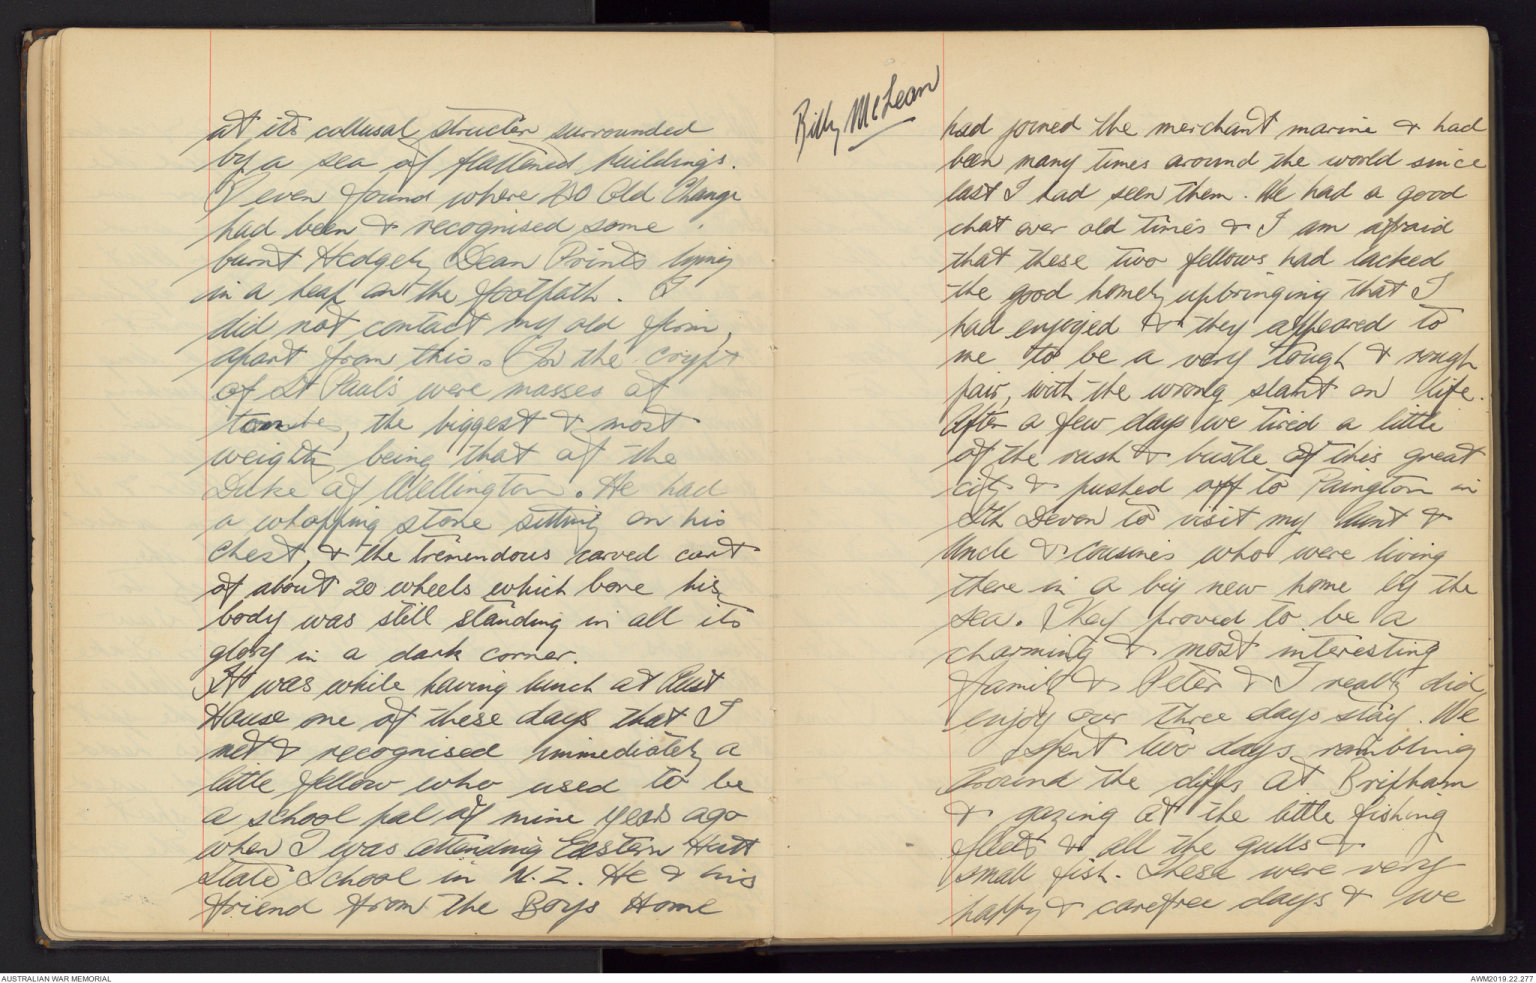 at its collusal structer surrounded
by a sea of flattened buildings.
I even found where 40 Old Change
had been & recognised some
burnt Hedgely Dean Prints lying
in a heap on the footpath. I
did not contact my old firm,
apart from this. In the crypt
of St Paul's were masses of
tombs, the biggest & most
weighty being that of the
Duke of Wellington. He had
a whopping stone sitting on his
chest, & the tremendous carved cart
of about 20 wheels which bore his
body was still standing in all its
glory in a dark corner.
It was while having lunch at Aust
House one of these days that I
met & recognised immediately a
little fellow who used to be
a school pal of mine years ago
when I was attending Eastern Hutt
State School in N.Z. He & his
friend from the Boys Home
Billy McLean
had joined the merchant marine & had
been many times around the world since
last I had seen them. We had a good
chat over old times & I am afraid
that these two fellows had lacked
the good homely upbringing that I
had enjoyed & they appeared to
me to be a very tough & rough
pair, with the wrong slant on life.
After a few days we tired a little
of the rush & bustle of this great
city & pushed off to Paington in
Sth Devon to visit my Aunt &
Uncle & cousines who were living
there in a big new home by the
sea. They proved to be a
charming & most interesting
family & Peter & I really did
enjoy our three days stay. We
spent two days rambling
around the cliffs at Brixham
& gazing at the little fishing
fleet & all the gulls &
small fish. These were very
happy & carefree days & we
AUSTRALIAN WAR MEMORIAL
AWM2019.22.277